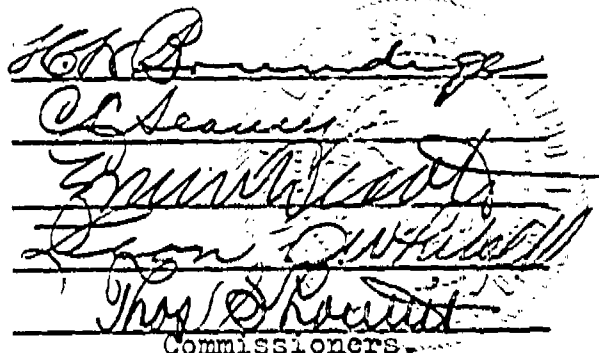 H.W. Brundige
C L Seavey
Leon O. Whitsell
Thos S Louttit
Commissioners.